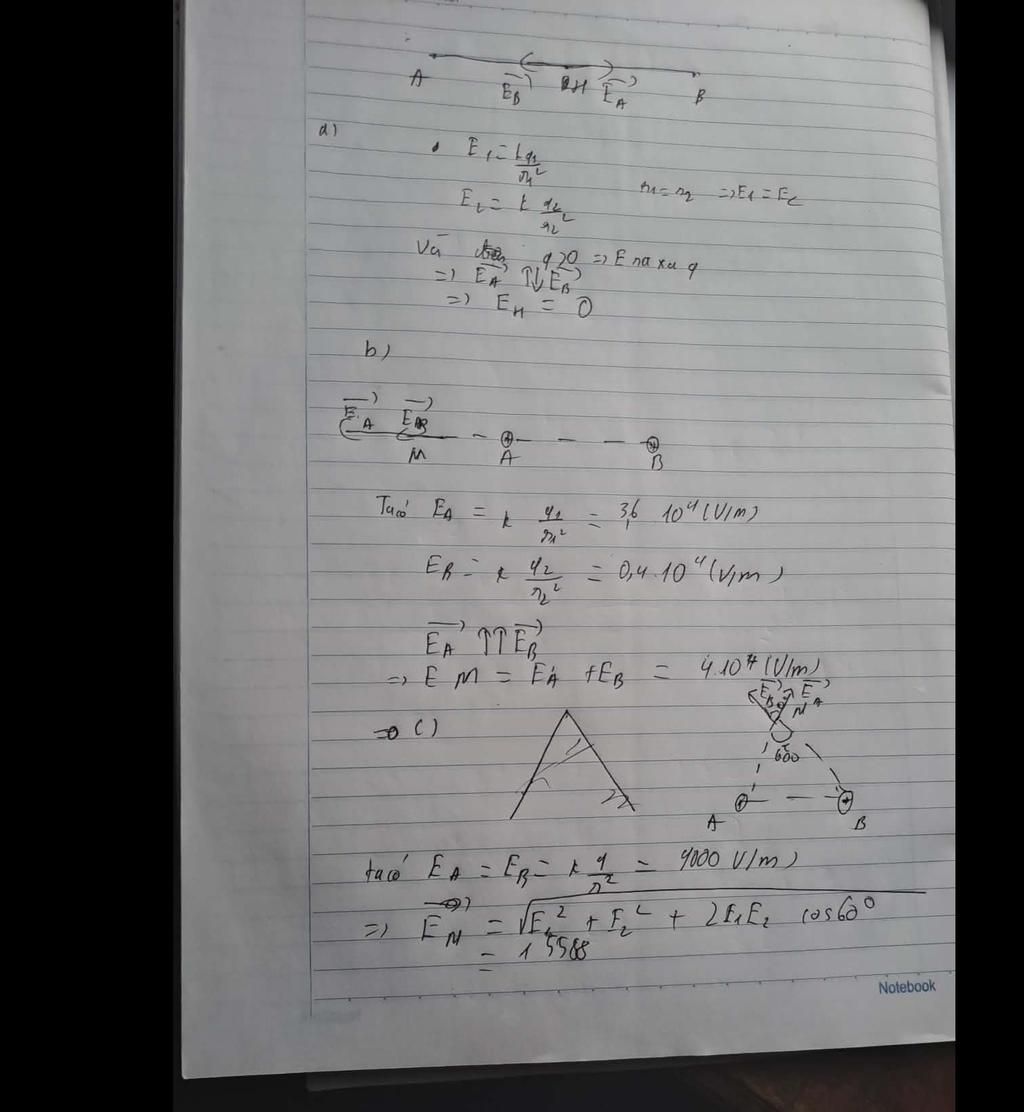 A E⃗_B H E⃗_A B
a)
E₁ = k q₁/r₁²
E₂ = k q₂/r₂² r₁ = r₂ ⇒ E₁ = E₂
Và q>0 ⇒ E ra xa q
⇒ E⃗_A ↑↓ E⃗_B
⇒ E_H = 0
b)
E⃗_A E⃗_B
M A B
Ta có E_A = k q₁/r₁² = 3,6 10⁴ (V/m)
E_B = k q₂/r₂² = 0,4.10⁴ (V/m)
E⃗_A ↑↑ E⃗_B
⇒ E M = E_A + E_B = 4.10⁴ (V/m)
E⃗_B E⃗_A
M
⇒ c)
60⁰
A B
ta có E_A = E_B = k q/r² = 9000 V/m)
⇒ E⃗_M = √E₁² + E₂² + 2E₁E₂ cos60⁰
= 15588
Notebook